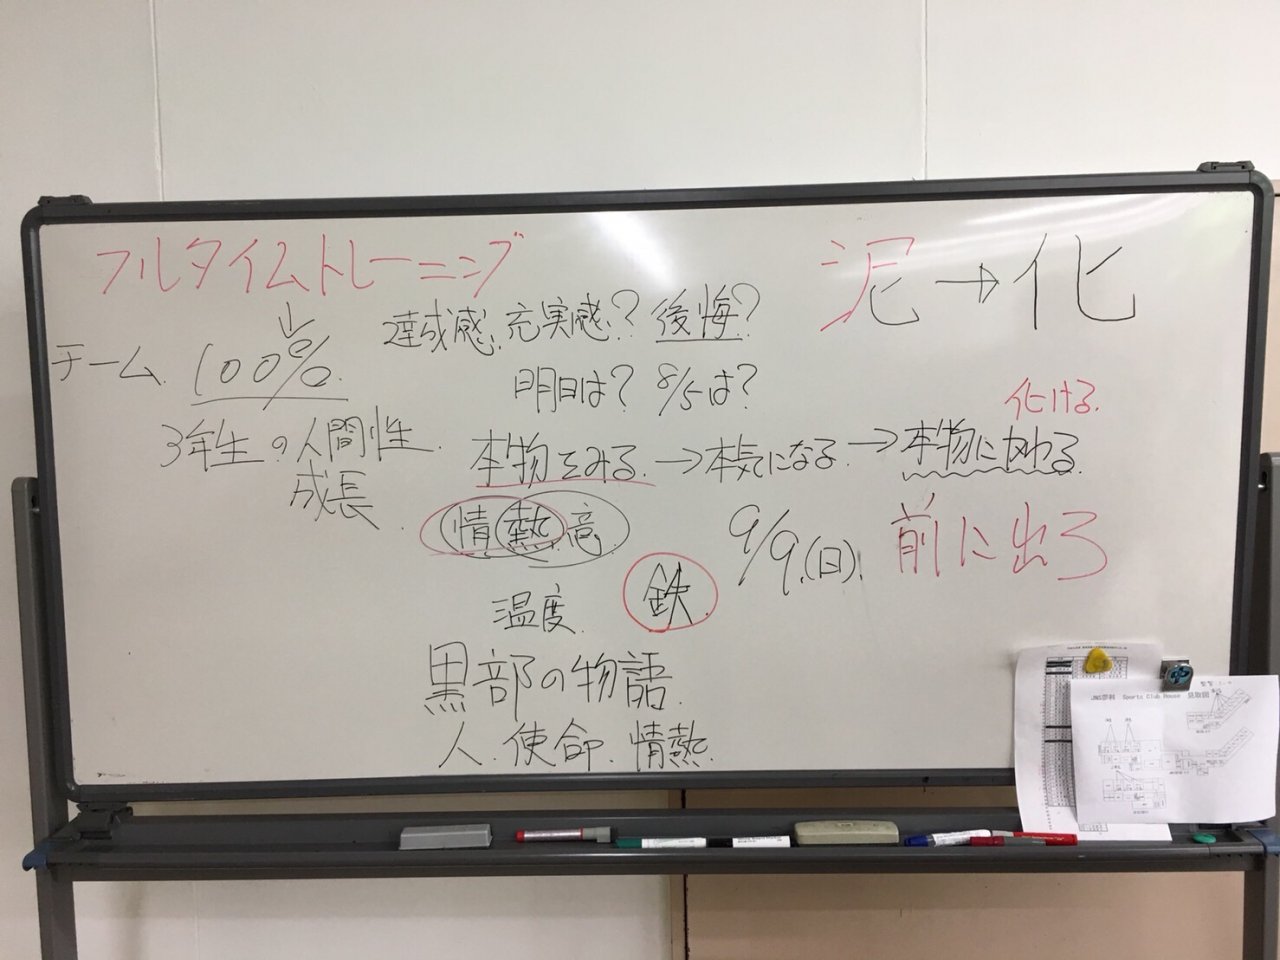 フルタイムトレーニング
泥→化
↓
達成感、充実感?後悔?
チーム 100%
明日は?8/5は?
化ける
3年生の人間性
成長
本物をみる→本気になる→本物に
情熱意
鉄
9/9(日)
前に出ろ
温度
黒部の物語
人、使命、情熱
JNS蓼科 Sports Club House 見取図